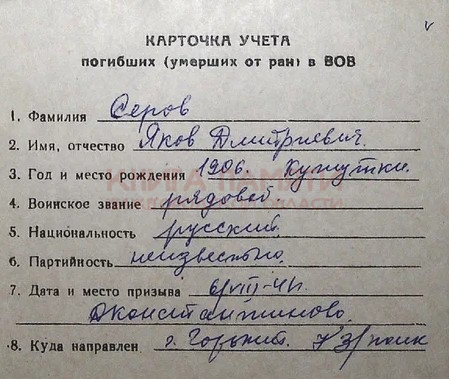 КАРТОЧКА УЧЕТА
погибших (умерших от ран) в ВОВ
1. Фамилия Серов
2. Имя, отчество Яков Дмитриевич.
3. Год и место рождения 1906.
КНИГА ПАМЯТИ
4. Воинское звание рядовой.
5. Национальность русский
6. Партийность неизвестно.
7. Дата и место призыва VIII-41
Дконстантиново.
8. Куда направлен г. Горький.